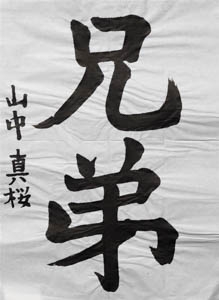 兄弟
山中真桜